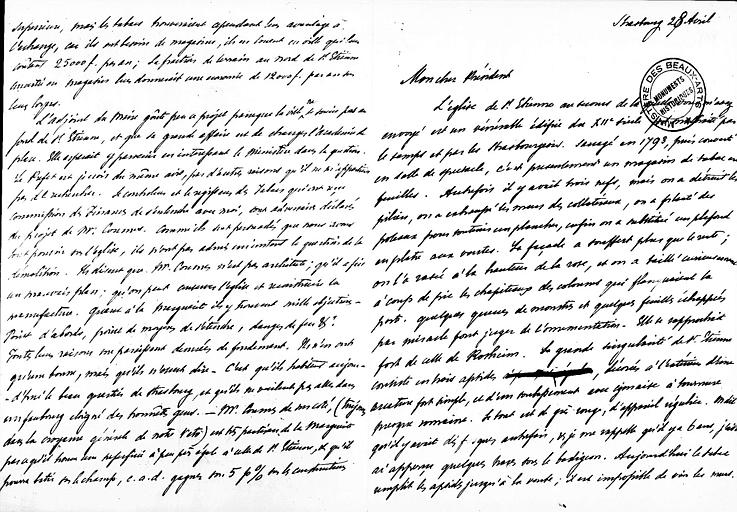 Strasbourg 28 Avril
Mon cher Président
L'église de St Etienne au secours de la
envoyé est un vénérable édifice du XIIe siècle
le temps et par les Strasbourgeois. Saccagé en 1793, puis converti
en salle de spectacle, c'est présentement un magasin de tabac en
feuilles. Autrefois il y avait trois nefs, mais on a détruit les
piliers, on a exhaussé les murs des collatéraux, on a placé des
poteaux pour soutenir un plancher, enfin on a substitué un plafond
en plâtre aux voûtes. La façade a souffert plus que le reste ;
on l'a rasée à la hauteur de la rose, et on a taillé
à coups de pic les chapiteaux des colonnes qui flanquaient la
porte. quelques queues de monstres et quelques feuilles échappés
par miracle font juger de l'ornementation. Elle se rapprochait
fort de celle de Rosheim. La grande singularité de St Etienne
consiste en trois absides, décorées à l'extérieur d'une
arcature fort simple, et d'un soubassement avec cimaise à tournure
presque romaine. Le tout est de grès rouge, d'appareil régulier.
qu'il y avait autrefois, et je me rappelle qu'il y a 6 ans, j'
ai apperçu quelques traces sous le badigeon. Aujourd'hui le tabac
emplit les absides jusqu'à la voute ; il est impossible de voir les murs.
supérieur, mais les tabacs trouveraient cependant leur avantage à
l'échange, car ils ont besoin de magasins, ils en louent en ville qui leur
coûtent 25000 f. par an ; La fraction de terrain au nord de St Etienne
convertie en magasin leur donnerait une économie de 12000 f. par an sur
leurs loyers.
L'adjoint du Maire goûte peu ce projet parceque la ville ne serait pas au
fond de St Etienne, et que sa grande affaire est de changer l'académie de
place. Il espérait y parvenir en intéressant le Ministère dans la question.
Le Préfet
pas d'. Le contrôleur et le régisseur des Tabacs qui
commission des Finances de s'entendre avec moi, sont adversaires déclarés
du projet de Mr. Coumes. Comme ils sont persuadés que nous avons
tout pouvoir sur l'église, ils n'ont pas admis un instant la question de la
démolition. Ils disent que Mr. Coumes n'est pas architecte ; qu'il a fait
un mauvais plan ; qu'on peut conserver l'église et reconstruire la
manufacture. Quant à la ils y trouvent mille objections.
Point d'abords, point de moyens de s'étendre, danger de feu &c.
Toutes leurs raisons me paraissent dénuées de fondement. Ils n'en ont
qu'une bonne, mais qu'ils n'osent dire - C'est qu'ils habitent aujour-
-d'hui le beau quartier de Strasbourg, et qu'ils ne veulent pas aller dans
un faubourg éloigné des honnêtes gens. - Mr. Coumes de son côté,
dans la croyance générale de notre Veto) est très partisan de la
parcequ'il trouve une superficie à peu près égale à celle de St Etienne, et qu'il
pourra bâtir sur le champ, c. a. d. gagner son 5 p % sur les constructions